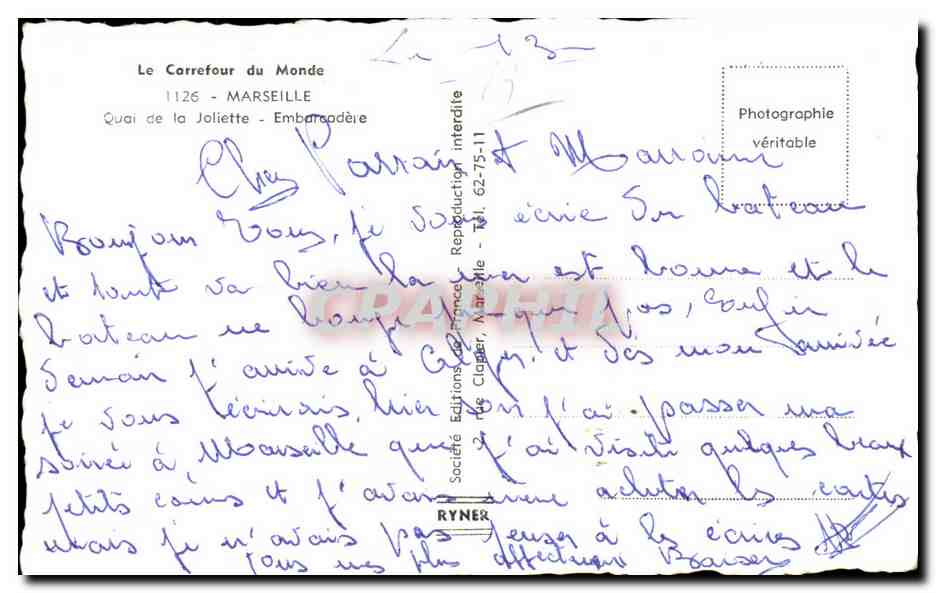 Le 13
Le Carrefour du Monde
1126 - MARSEILLE
Quai de la Joliette - Embarcadère
Photographie
véritable
Société Editions de France - Reproduction interdite
2, rue Clapier, Marseille - Tél. 62-75-11
RYNER
CPAPHIL
Cher Parrain et Marraine
Bonjour Vous, je vous écrie du bateau
et tout va bien la mer est bonne et le
bateau ne bouge presque pas, Enfin
Demain j'arrive à Alger, et dès mon arrivée
je vous écrirais, hier soir j'ai passer ma
soirée à Marseille que j'ai visité quelques beaux
petits coins et j'avais même acheter les cartes
mais je n'avais pas penser à les écrires
Tous mes plus affectueux Baisers